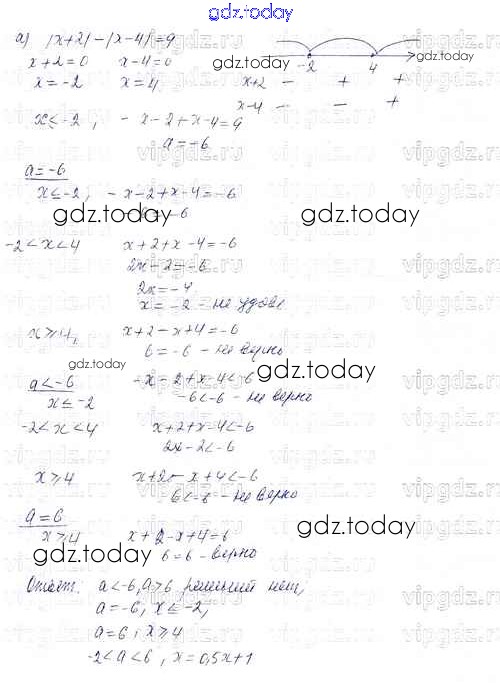 gdz.today
а) |x+2|-|x-4|=a
x+2=0 x-4=0
x=-2 x=4
gdz.today
-2 4
x+2 - + +
x-4 - - +
x≤-2, -x-2+x-4=a
a=-6
a=-6
x≤-2, -x-2+x-4=-6
-6=-6
gdz.today
gdz.today
-2<x<4 x+2+x-4=-6
2x-2=-6
2x=-4
x=-2 - не удовл
x≥4, x+2-x+4=-6
6=-6 - не верно
gdz.today
gdz.today
a<-6
x≤-2 -x-2+x-4<-6
-6<-6 - не верно
-2<x<4 x+2+x-4<-6
2x-2<-6
x≥4 x+2-x+4<-6
6<-6 - не верно
a=6
x≥4 x+2-x+4=6
6=6 - верно
gdz.today
gdz.today
Ответ: a<-6, a>6 решений нет,
a=-6, x≤-2,
a=6, x≥4
-2<a<6, x=0,5x+1
gdz.today
vipgdz.ru